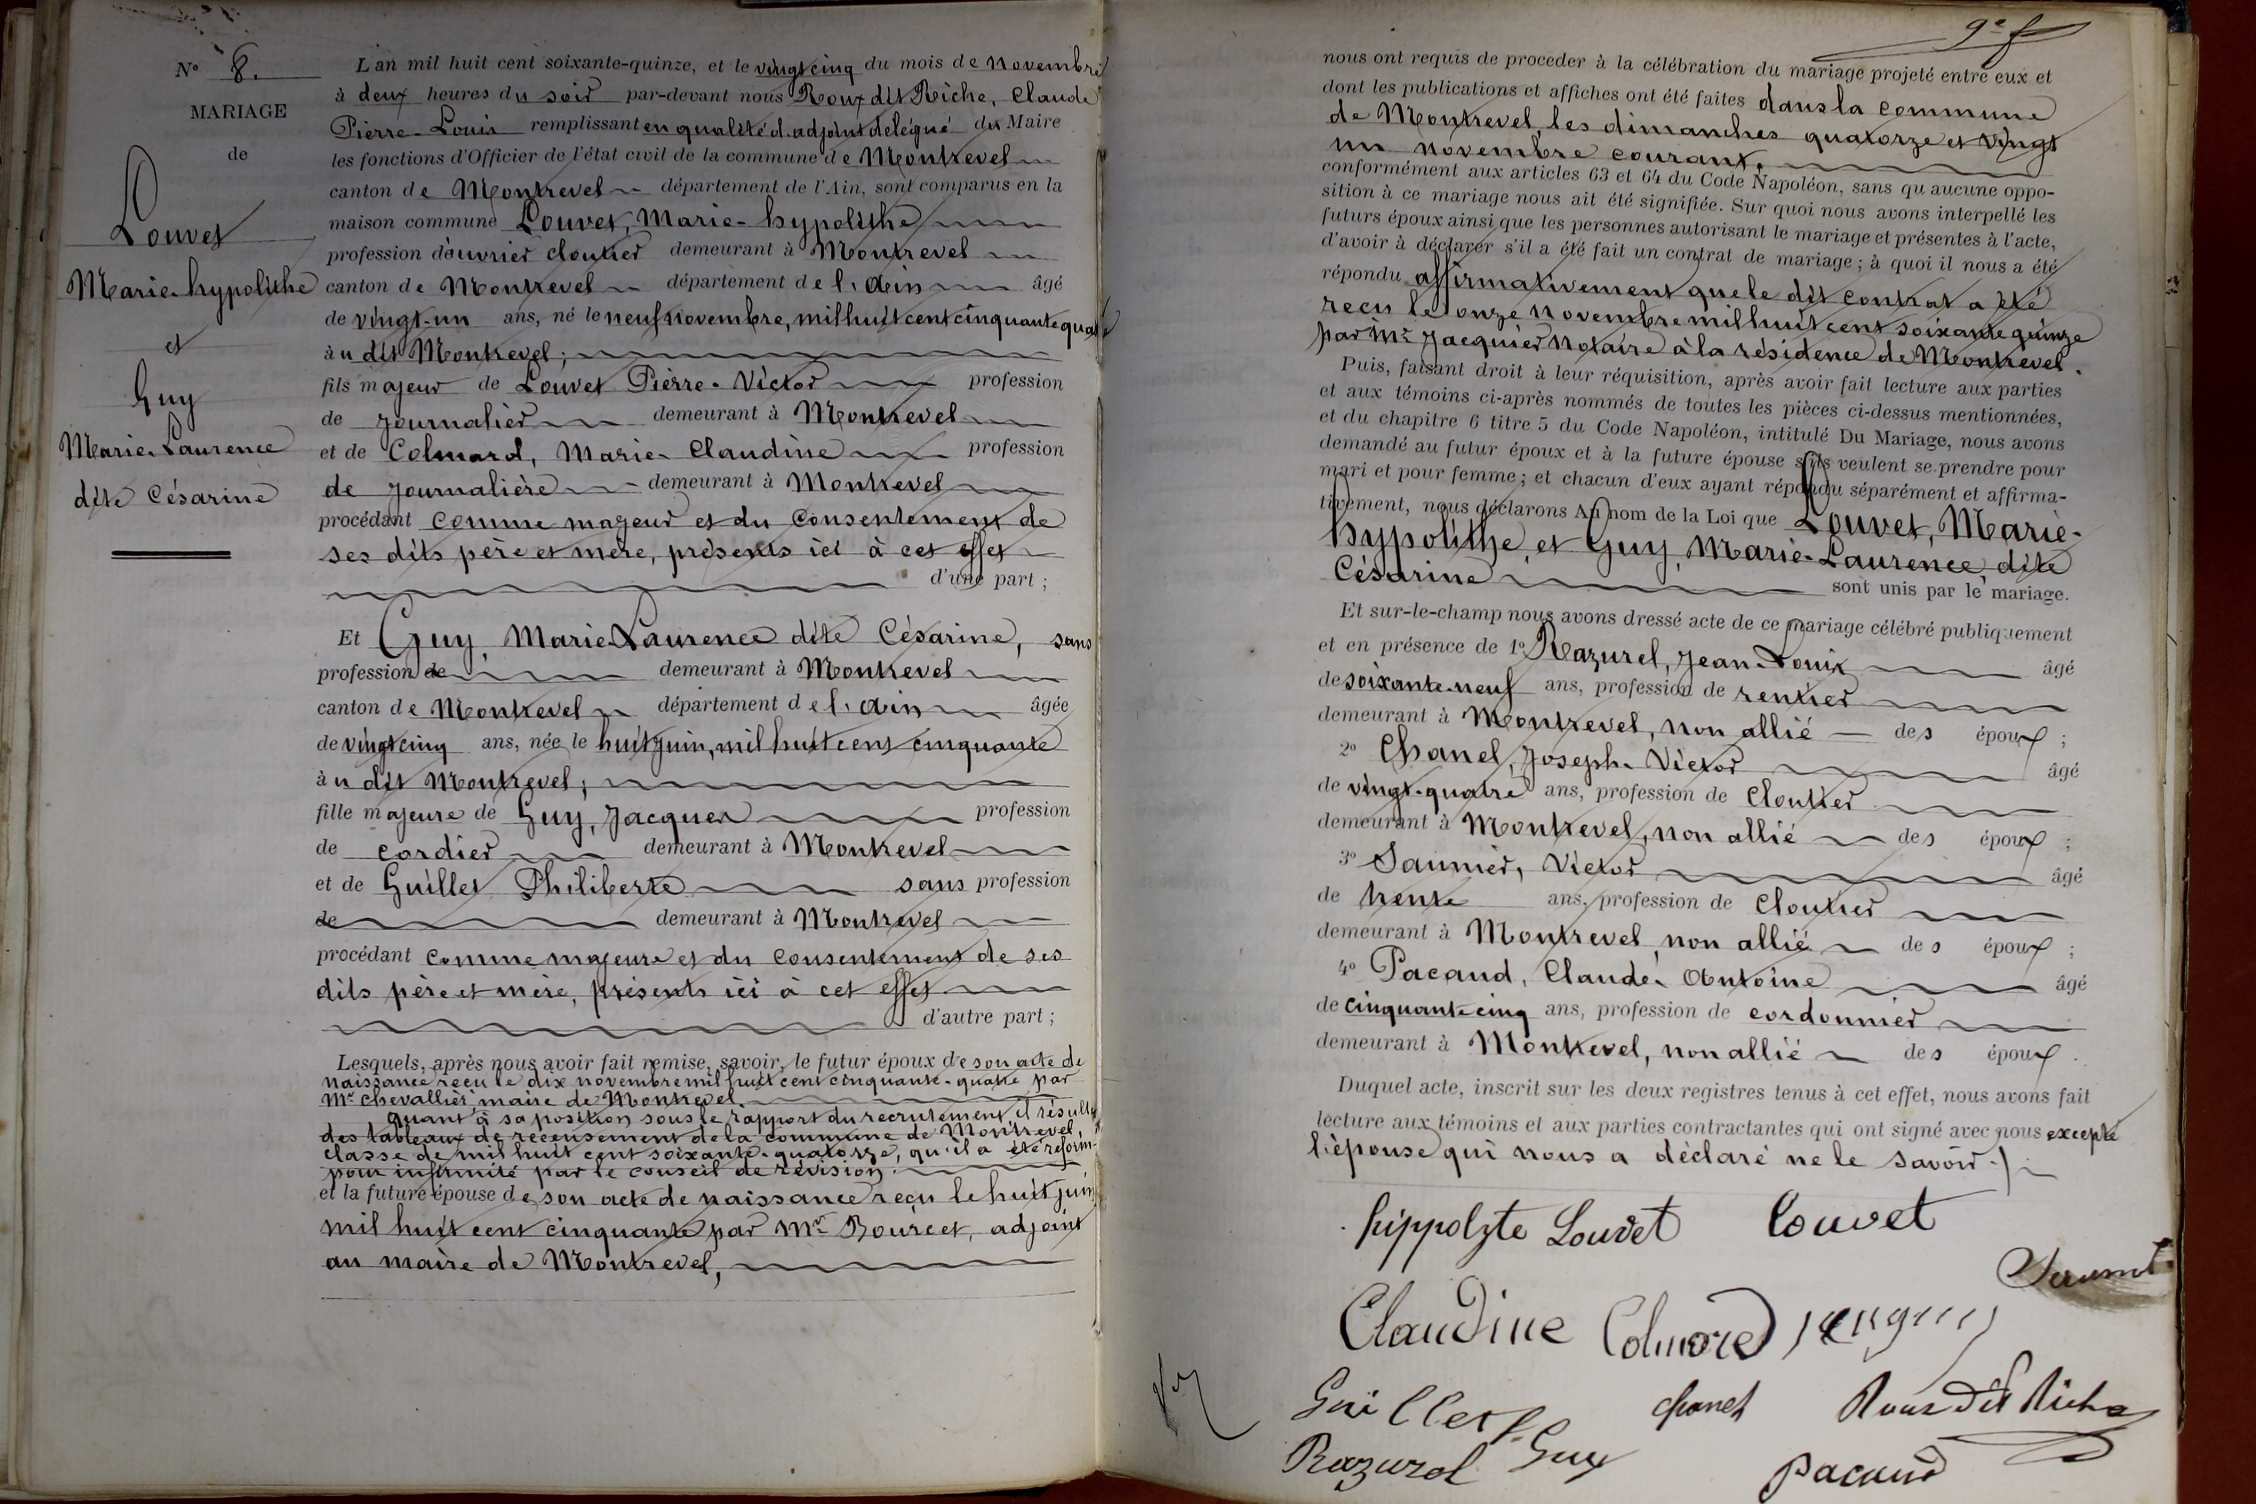 N° 8.
MARIAGE
de
Louvet
Marie-hypolithe
et
Guy
Marie-Laurence
dite Césarine
L'an mil huit cent soixante-quinze, et le vingt cinq du mois de Novembre
à deux heures du soir par-devant nous Roux dit Riche, Claude
Pierre-Louis remplissant en qualité d'adjoint délégué du Maire
les fonctions d'Officier de l'état civil de la commune de Montrevel
canton de Montrevel département de l'Ain, sont comparus en la
maison commune Louvet, Marie-hypolithe
profession d'ouvrier cloutier demeurant à Montrevel
canton de Montrevel département de l'ain âgé
de vingt-un ans, né le neuf novembre, mil huit cent cinquante quatre
à u dit Montrevel ;
fils majeur de Louvet Pierre-Victor profession
de journalier demeurant à Montrevel
et de Colmard, Marie-Claudine profession
de journalière demeurant à Montrevel
procédant comme majeur et du consentement de
ses dits père et mère, présents ici à cet effet
d'une part ;
Et Guy, Marie Laurence dite Césarine, sans
profession de demeurant à Montrevel
canton de Montrevel département de l'ain âgée
de vingt cinq ans, née le huit juin, mil huit cent cinquante
à u dit Montrevel ;
fille majeure de Guy, Jacques profession
de cordier demeurant à Montrevel
et de Guillet Philiberte sans profession
de demeurant à Montrevel
procédant comme majeure et du consentement de ses
dits père et mère, présents ici à cet effet
d'autre part ;
Lesquels, après nous avoir fait remise, savoir, le futur époux de son acte de
naissance reçu le dix novembre mil huit cent cinquante-quatre par
Mr chevallier, maire de Montrevel.
quant à sa position sous le rapport du recrutement il résulte
des tableaux de recensement de la commune de Montrevel,
classe de mil huit cent soixante-quatorze, qu'il a été réform-
pour infirmité par le conseil de révision.
et la future épouse de son acte de naissance reçu le huit juin
mil huit cent cinquante par Mr Bourcet, adjoint
au maire de Montrevel,
9e f
nous ont requis de procéder à la célébration du mariage projeté entre eux et
dont les publications et affiches ont été faites dans la commune
de Montrevel, les dimanches quatorze et vingt
un novembre courant.
conformément aux articles 63 et 64 du Code Napoléon, sans qu'aucune oppo-
sition à ce mariage nous ait été signifiée. Sur quoi nous avons interpellé les
futurs époux ainsi que les personnes autorisant le mariage et présentes à l'acte,
d'avoir à déclarer s'il a été fait un contrat de mariage ; à quoi il nous a été
répondu affirmativement que le dit contrat a été
reçu le onze novembre mil huit cent soixante quinze
par Mr Jacquier Notaire à la résidence de Montrevel.
Puis, faisant droit à leur réquisition, après avoir fait lecture aux parties
et aux témoins ci-après nommés de toutes les pièces ci-dessus mentionnées,
et du chapitre 6 titre 5 du Code Napoléon, intitulé Du Mariage, nous avons
demandé au futur époux et à la future épouse s'ils veulent se prendre pour
mari et pour femme ; et chacun d'eux ayant répondu séparément et affirma-
tivement, nous déclarons Au nom de la Loi que Louvet, Marie-
hypolithe, et Guy, Marie-Laurence, dite
Césarine sont unis par le mariage.
Et sur-le-champ nous avons dressé acte de ce mariage célébré publiquement
et en présence de 1° Razurel, Jean-Louis âgé
de soixante-neuf ans, profession de rentier
demeurant à Montrevel, non allié des époux ;
2° Chanel, Joseph-Victor âgé
de vingt-quatre ans, profession de Cloutier
demeurant à Montrevel, non allié des époux ;
3° Saunier, Victor âgé
de trente ans, profession de Cloutier
demeurant à Montrevel non allié des époux ;
4° Pacaud, Claude-Antoine âgé
de cinquante-cinq ans, profession de cordonnier
demeurant à Montrevel, non allié des époux.
Duquel acte, inscrit sur les deux registres tenus à cet effet, nous avons fait
lecture aux témoins et aux parties contractantes qui ont signé avec nous excepté
l'épouse qui nous a déclaré ne le savoir.
hippolyte Louvet Louvet
Claudine Colmard
Guillet f. Guy chanel Roux Dit Riche
Razurel Pacaud